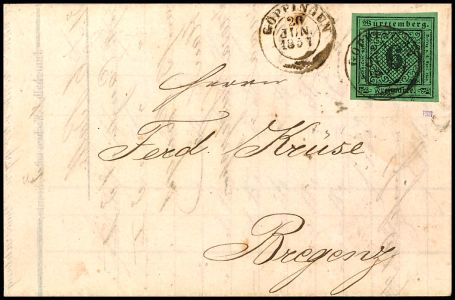 GÖPPINGEN
20
JUN.
1857
Württemberg.
6
Herrn
Ferd. Krüse
Bregenz